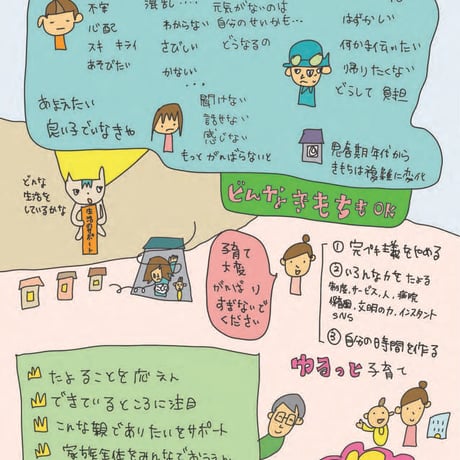 不安
心配
スキ キライ
あそびたい
混乱‥‥
わからない
さびしい
かない…
元気がないのは
自分のせいかも…
どうなるの
はずかしい
何か手伝いたい
帰りたくない
どうして 負担
甘えたい
良い子でいなきゃ
聞けない
話せない
感じない
もっとがんばらないと
思春期年代から
きもちは複雑に変化
どんなきもちもOK
どんな
生活を
しているかな
生活のサポート
子育て
大変
がんばり
すぎないで
ください
① 完ペキ主義をやめる
② いろんな力をたよる
制度、サービス、人、病院
保育園、文明の力、インスタント
SNS
③ 自分の時間を作る
ゆるっと子育て
たよることを応えん
できているところに注目
こんな親でありたいをサポート
家族全体をみんなでおうえん